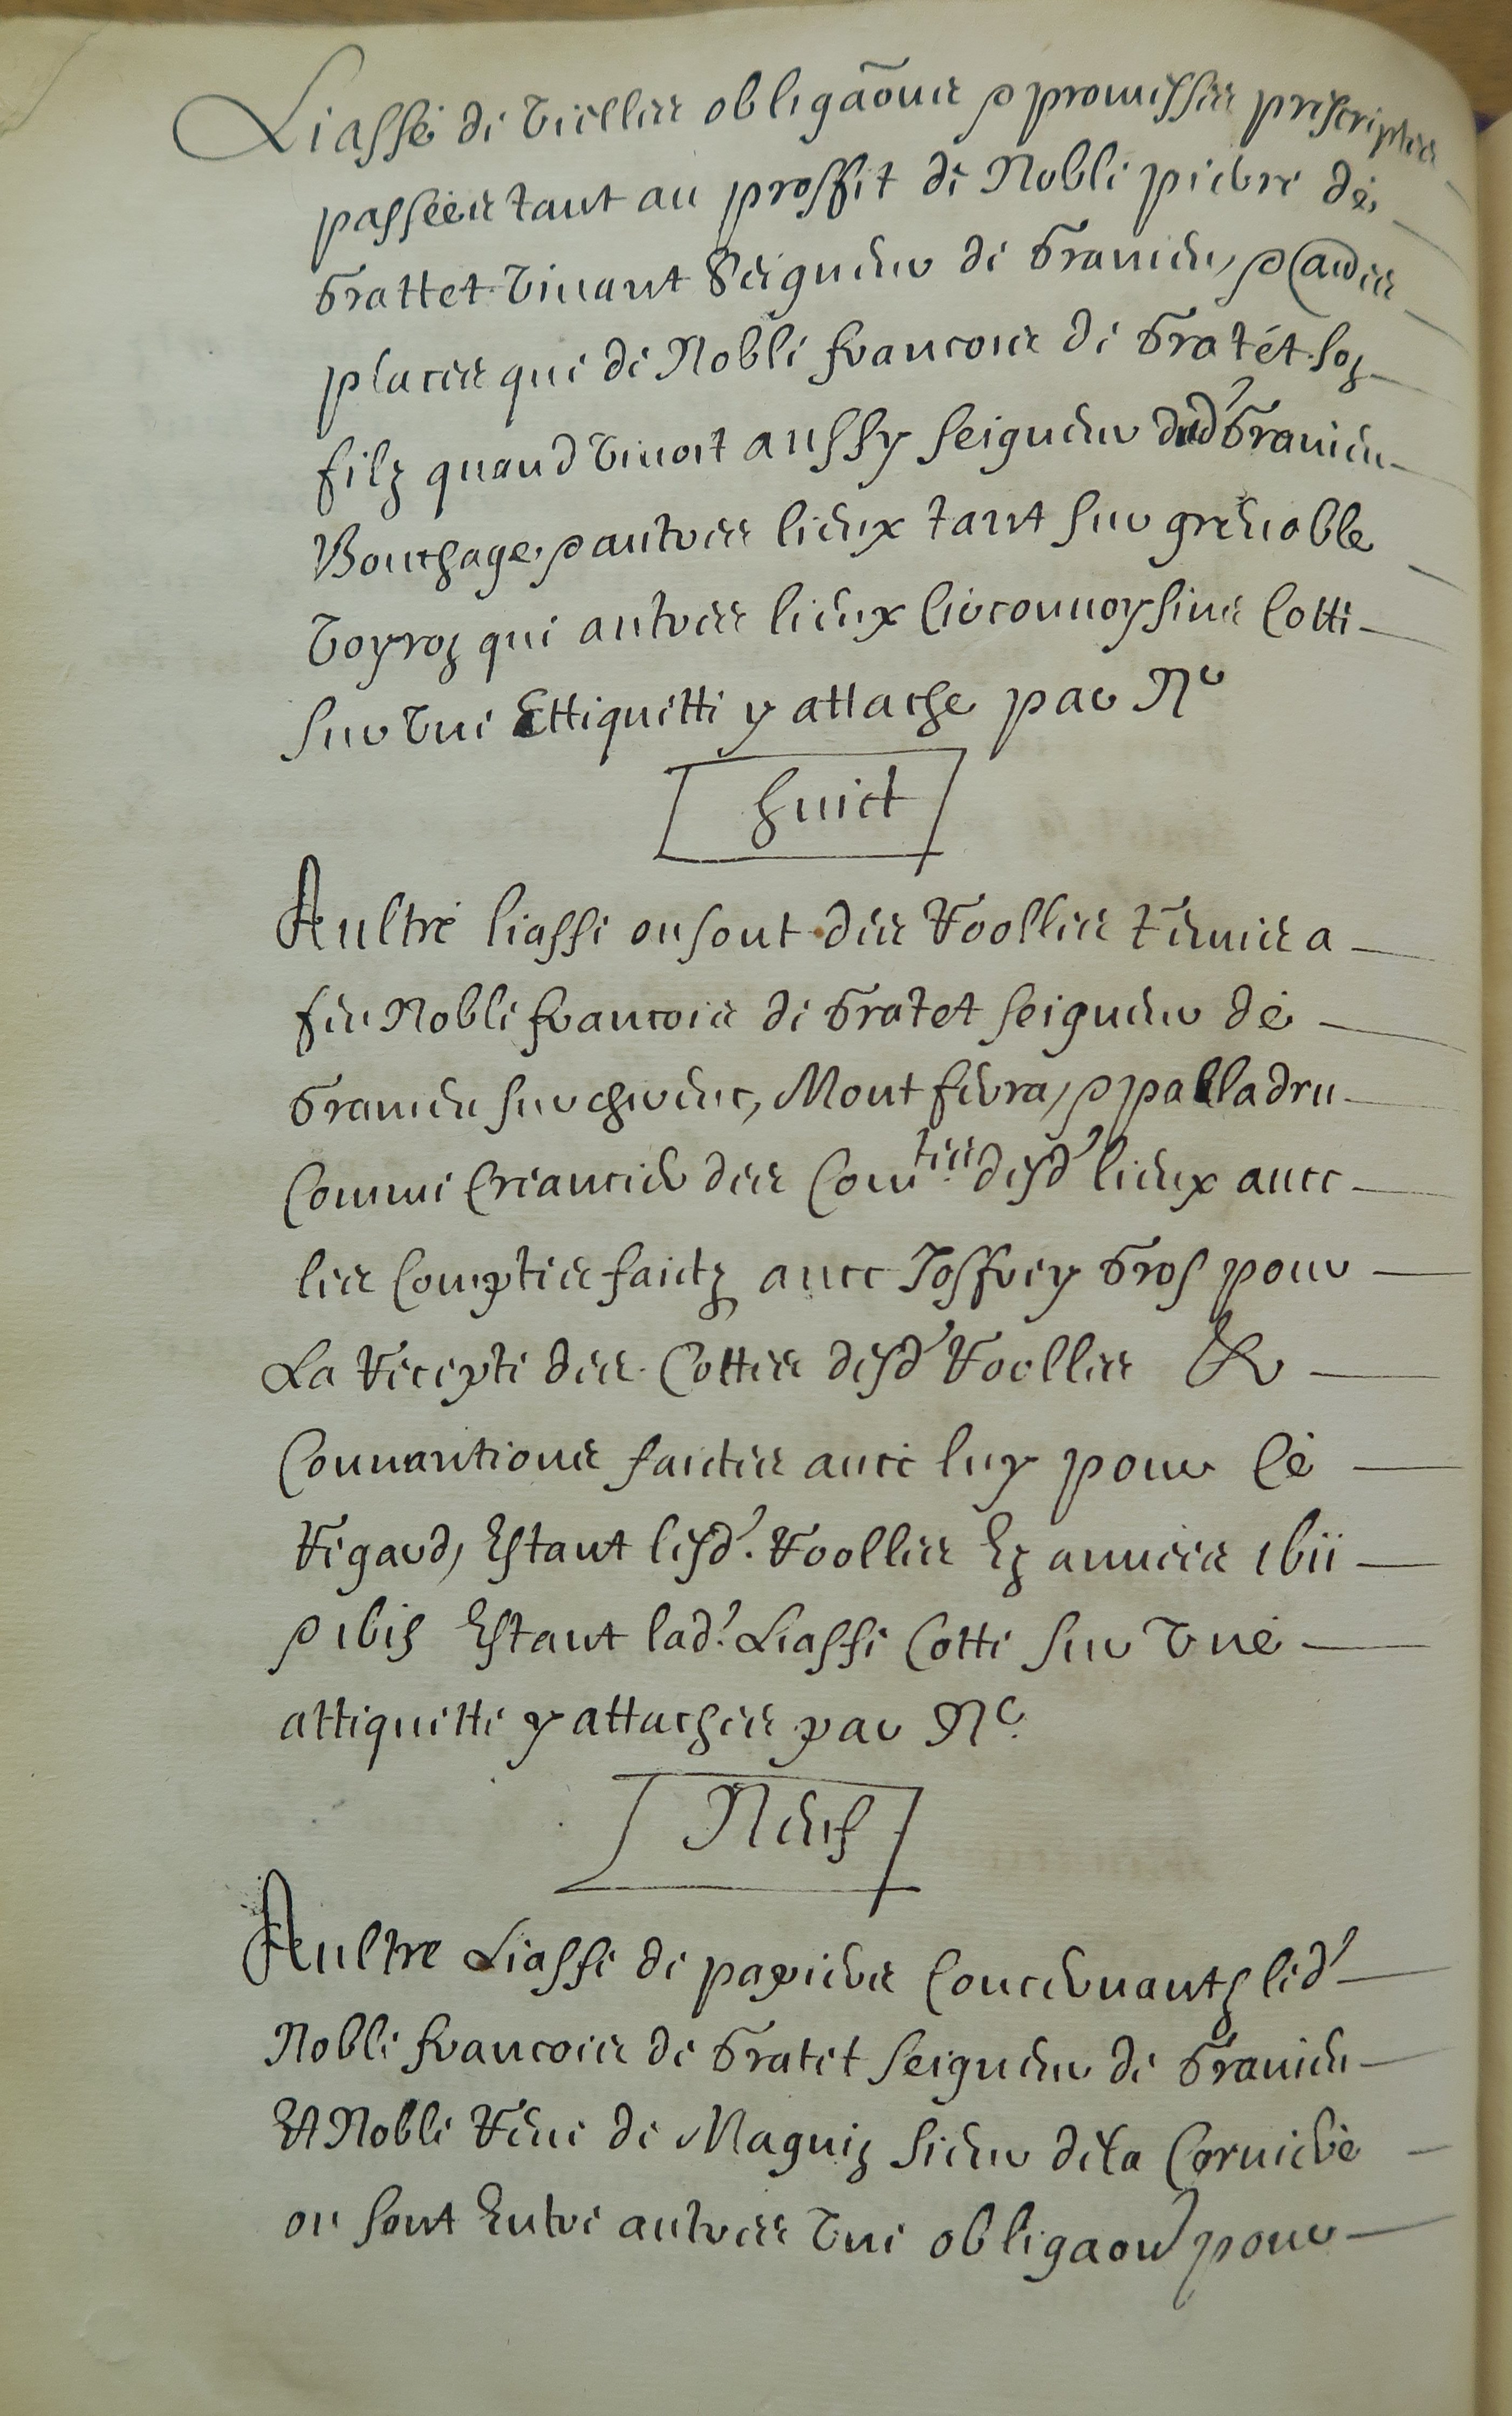 Liasse de vielles obligaõns & promisses prescriptes
passées tant au proffit de Noble pierre de
Grattet vivant Seigneur de Granieu, &
places que de Noble francois de Gratet son
filz quand vivoit aussy seigneur dud' Granieu
Bouchage & autres lieux tant sur grenoble
voyron que autres lieux circonvoysins Cotte
sur une Ettiquette y attache par Nr
huict
Aultre liasse ou sont des Roolles tenus a
feu Noble francois de Gratet seigneur de
Granieu sur chirenc, Montferra, & palladru
Comme Creancier des Comtes. desd' lieux avec
les Comptes faictz avec Joffrey Gros pour
La Recepte des Cottes desd' Roolles &
Convantions faictes avec luy pour ce
Regard, Estant lesd'. Roolles En annees 1bii
& 1bis Estant lad'. Liasse Cotte sur une
attiquette y attachee par Nr.
Neuf
Aultre Liasse de papiers Concernantz led'
Noble francois de Gratet seigneur de Granieu
Et Noble Rene de Magnin sieur de la Corniere
ou sont Entre autres une obligaon pour